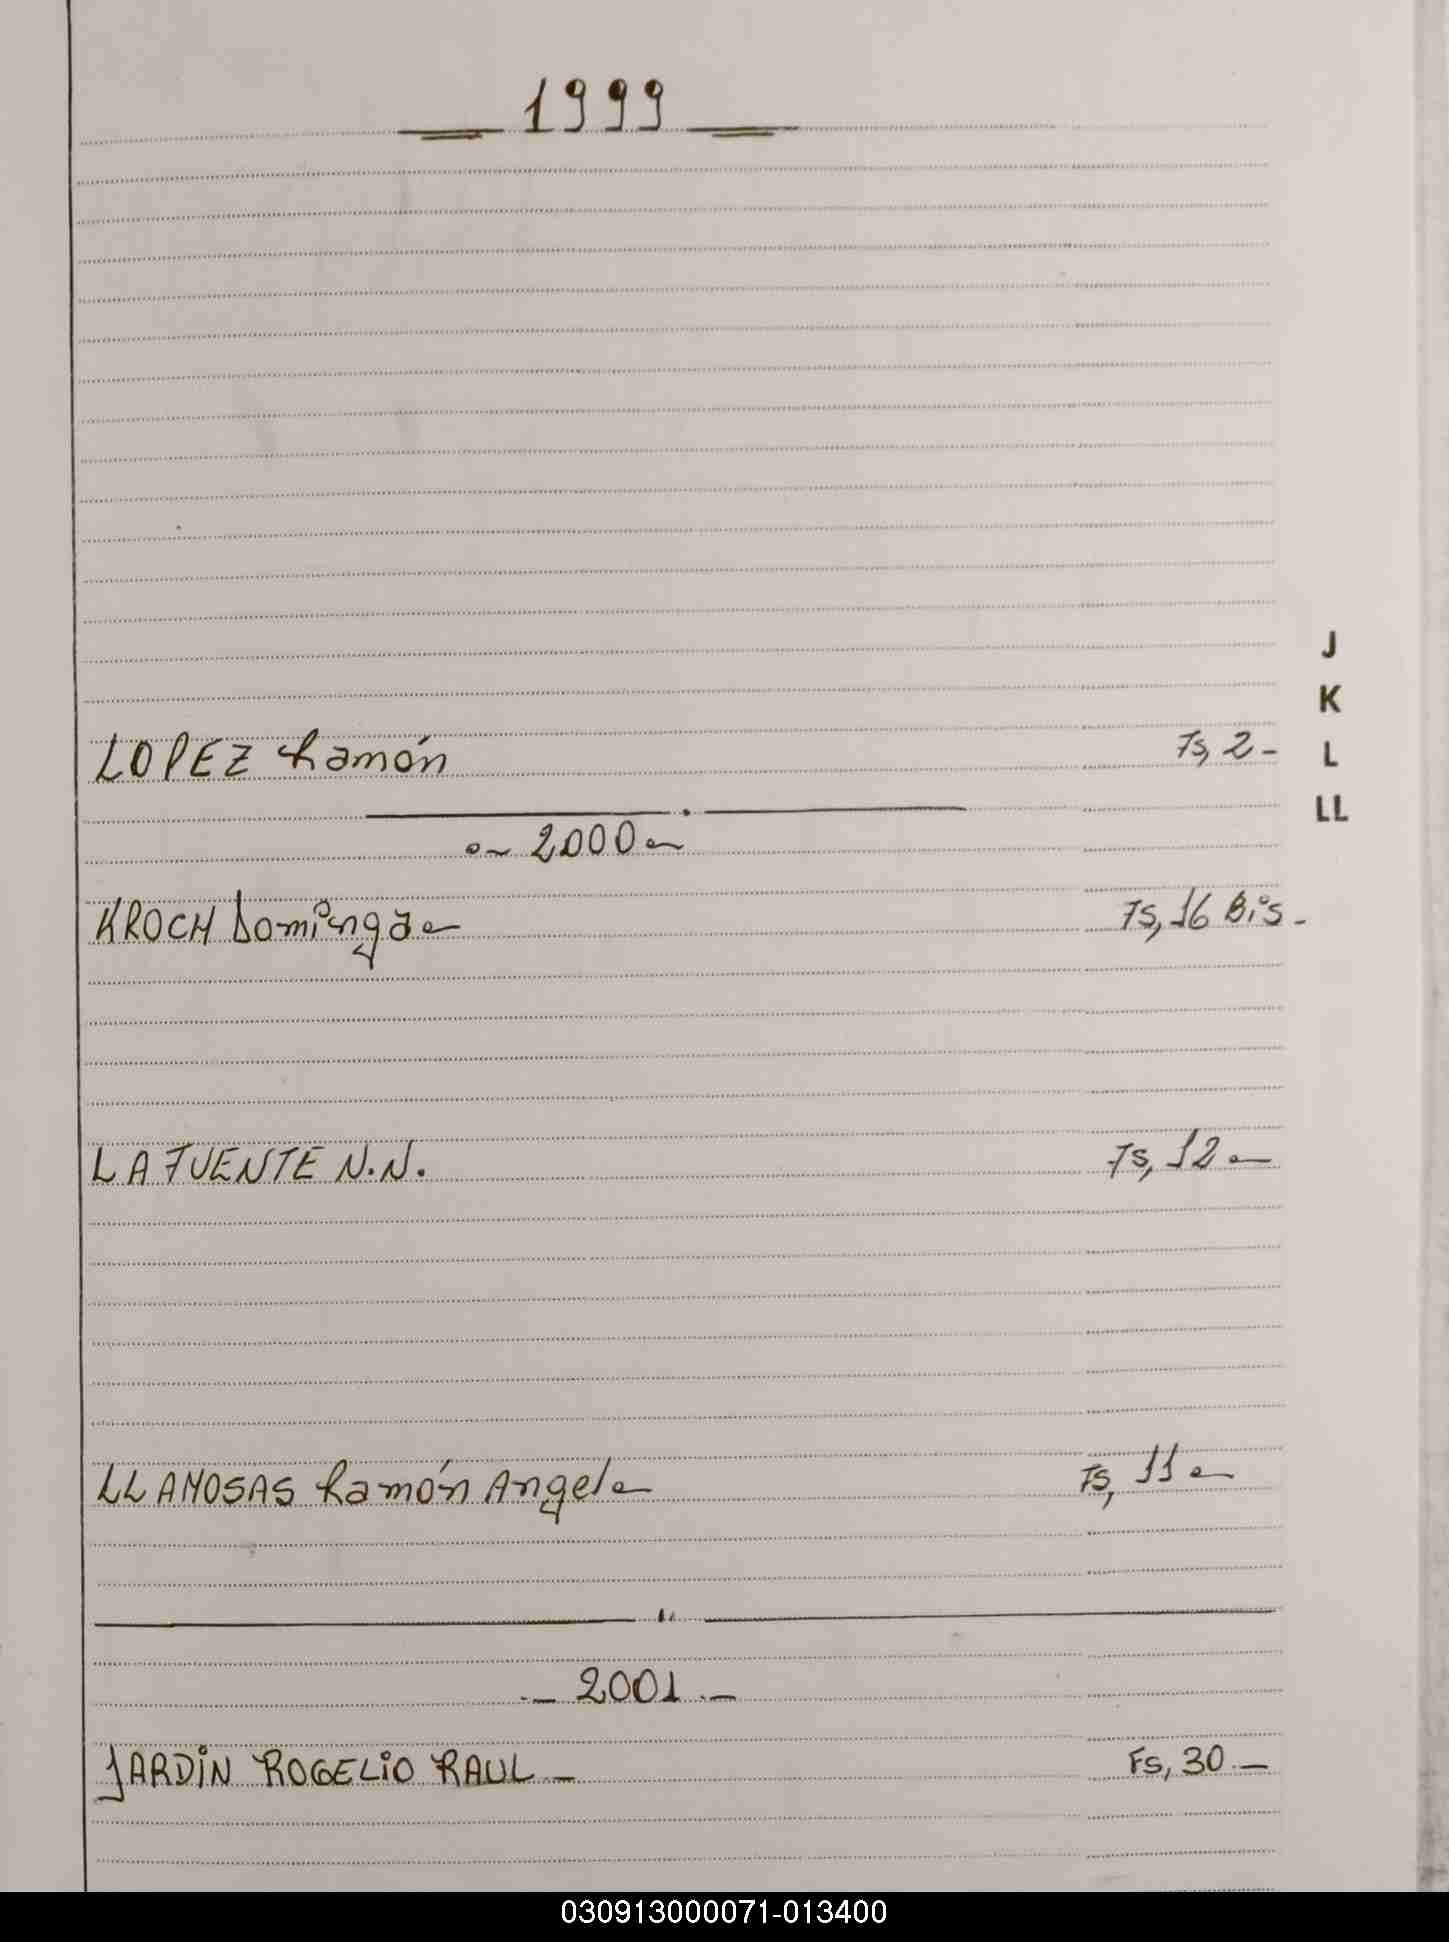 1999
J
K
LOPEZ Ramón Fs, 2 -
L
LL
2000
KROCH Dominga Fs, 16 Bis -
LA FUENTE N.N. Fs, 12
LLAMOSAS Ramón Angel Fs, 11
2001
JARDIN ROGELIO RAUL - Fs, 30 -
030913000071-013400